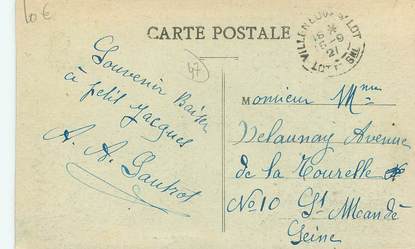 10€
CARTE POSTALE
47
Souvenir Baiser
à petit Jacques
A. A. Gautrot
VILLENEUVE-S-LOT
15 *
5-9
21
LOT ET GNE
Monsieur Mme
Delaunay Avenue
de la Tourelle
No 10 St Mandé
Seine